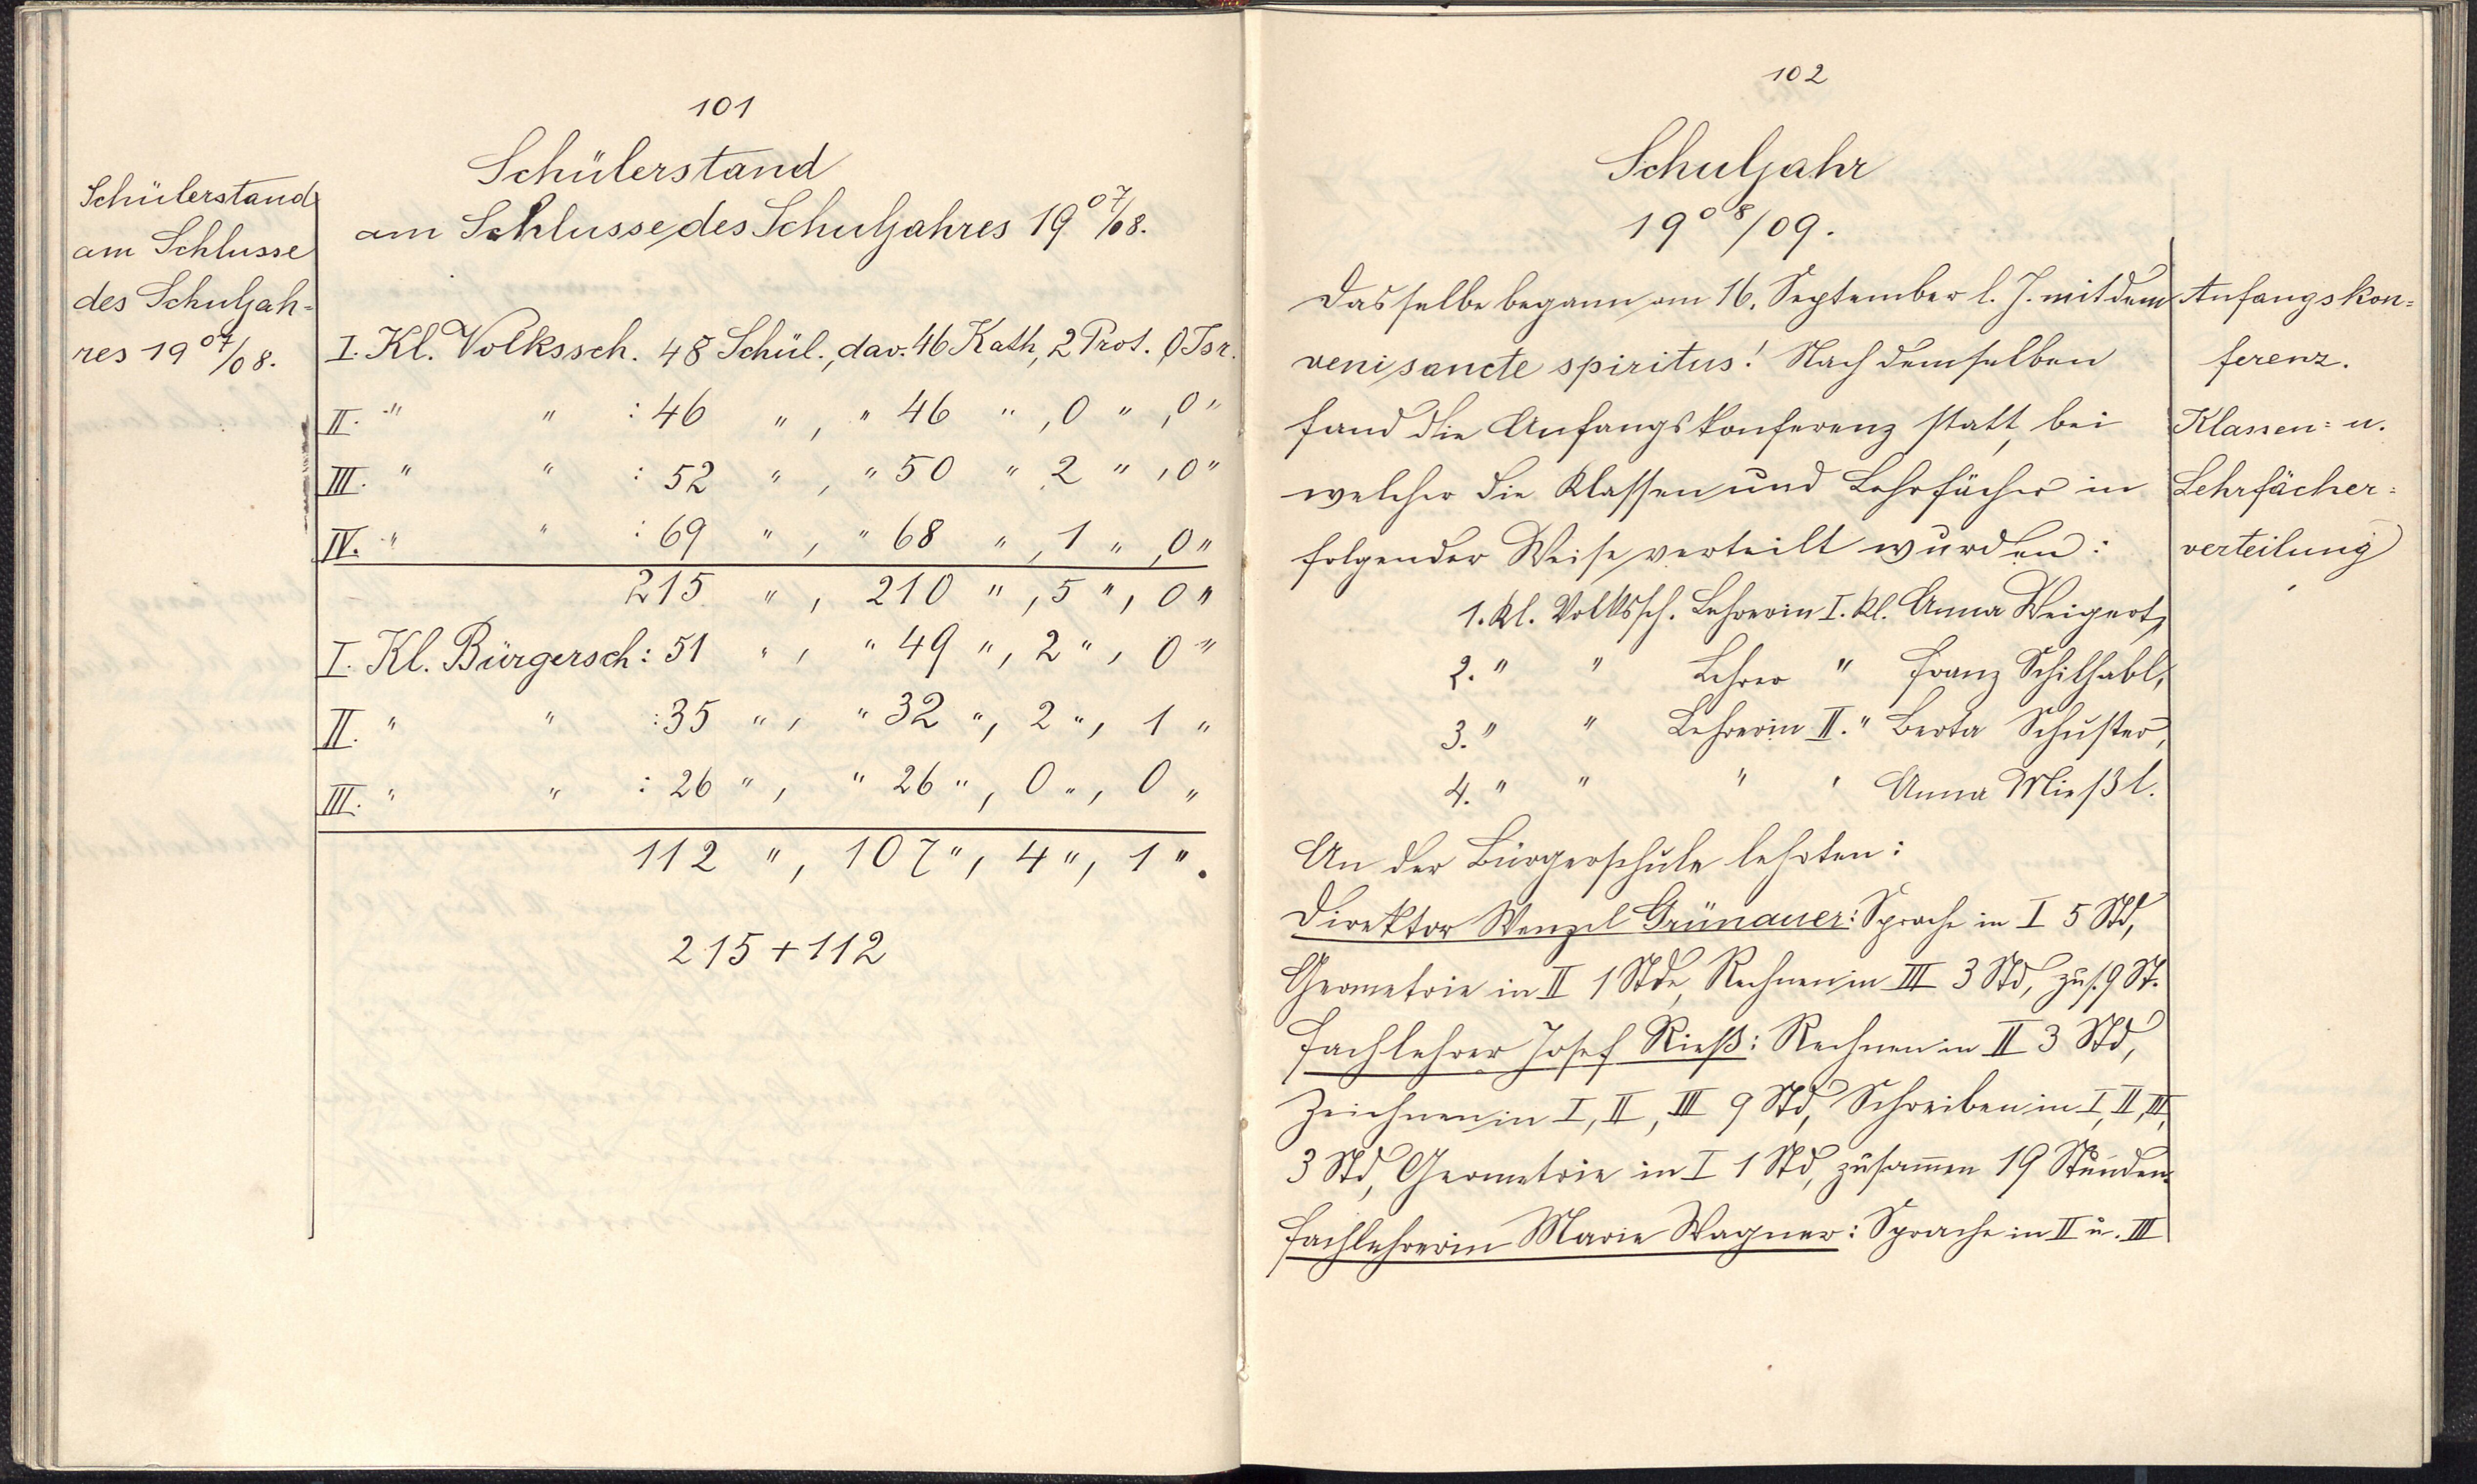 101
Schülerstand
am Schlusse
des Schuljah=
res 1907/08.
Schülerstand
am Schlusse des Schuljahres 1907/08.
I. Kl. Volkssch. 48 Schül., dav. 46 Kath, 2 Prot. 0 Isr.
II. " " : 46 " , " 46 " , 0 " , 0 "
III. " " : 52 " , " 50 " 2 " , 0 "
IV. " " : 69 " , " 68 " , 1 " , 0 "
215 " , 210 " , 5 " , 0 "
I. Kl. Bürgersch: 51 " , " 49 " , 2 " , 0 "
II. " " : 35 " , " 32 " , 2 " , 1 "
III. " " : 26 " , " 26 " , 0 " , 0 "
112 " , 107 " , 4 " , 1 ".
215 + 112
102
Schuljahr
1908/09.
Dasselbe begann am 16. September l. J. mit dem
veni sancte spiritus! Nach demselben
fand die Anfangskonferenz statt, bei
welcher die Klassen und Lehrfächer in
folgender Weise verteilt wurden:
1. Kl. Volkssch. Lehrerin I. Kl. Anna Weigert,
2. " " Lehrer " Franz Schilhabl,
3. " " Lehrerin II. " Berta Schuster,
4. " " " " Anna Mießl.
An der Bürgerschule lehrten:
Direktor Wenzel Grünauer: Sprache in I 5 Std,
Geometrie in II 1 Stde, Rechnen in III 3 Std, zus. 9 St.
Fachlehrer Josef Rieß: Rechnen in II 3 Std,
Zeichnen in I, II, III 9 Std, Schreiben in I, II, III,
3 Std, Geometrie in I 1 Std, zusam̄en 19 Stunden.
Fachlehrerin Marie Wagner: Sprache in II u. III
Anfangskon=
ferenz.
Klassen= u.
Lehrfächer=
verteilung